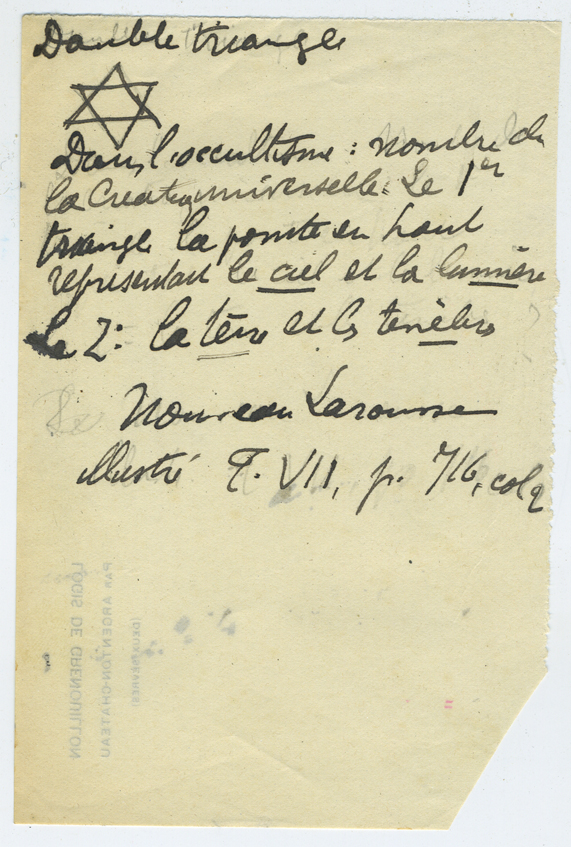 Double triangle
Dans l'occultisme : nombre de
la Creation universelle. Le 1er
triangle la pointe en haut
représentant le ciel et la lumière
Le 2: la terre et les tenèbres
Nouveau Larousse
illustré T. VII, p. 716, col 2
LOGIS DE GRENOUILLON
PAR ARGENTON-CHATEAU
(DEUX-SÈVRES)